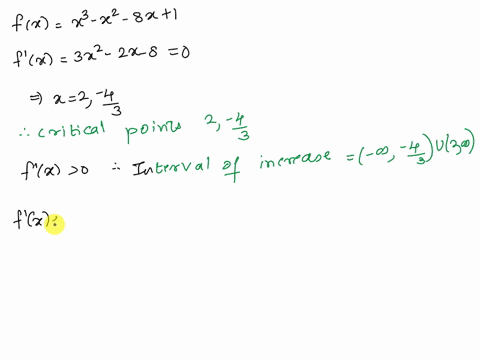 f(x) = x³ - x² - 8x + 1
f'(x) = 3x² - 2x - 8 = 0
⇒ x = 2, -4/3
∴ critical points 2, -4/3
f'(x) > 0 ∴ Interval of increase = (-∞, -4/3) U (2, ∞)
f'(x) :